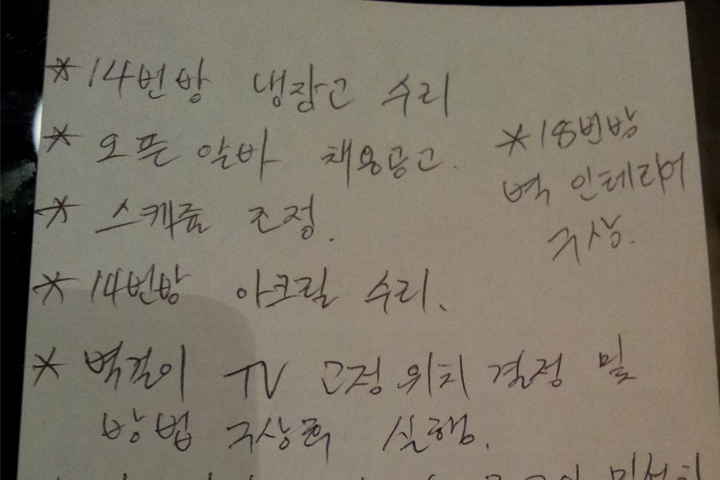 * 14번방 냉장고 수리
* 오픈 알바 채용공고.
* 18번방
벽 인테리어
구상.
* 스케쥴 조정.
* 14번방 아크릴 수리.
* 벽걸이 TV 고정 위치 결정 및
방법 구상후 실행.